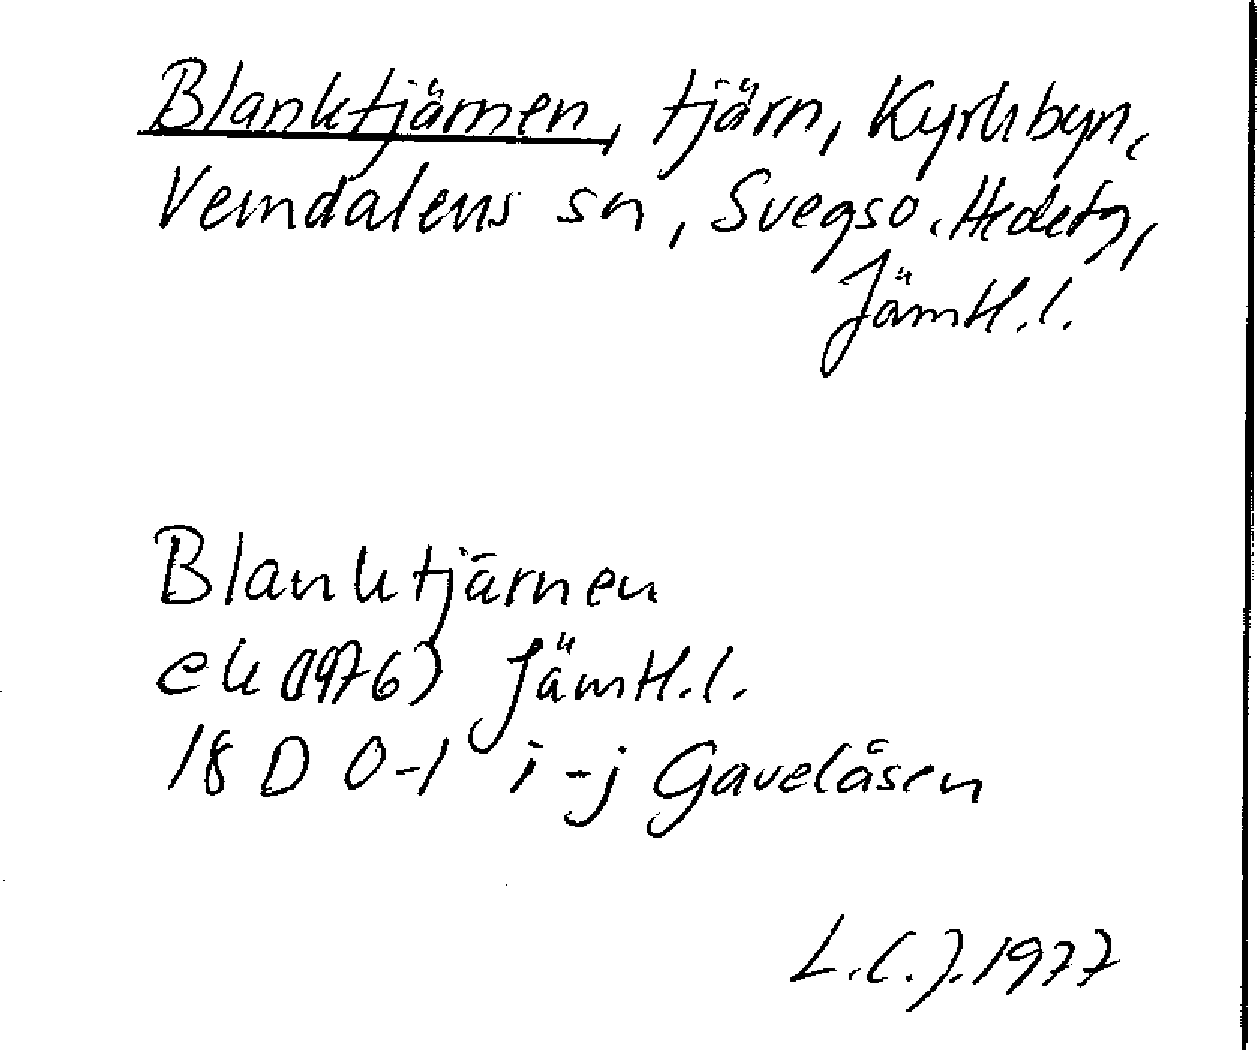 Blanktjärnen, tjärn, Kyrkbyn,
Vemdalens sn, Svegs o. Hedetg,
Jämtl.l.
Blanktjärnen
ek (1976) Jämtl.l.
18 D 0-1 i-j Gavelåsen
L.C.J. 1977